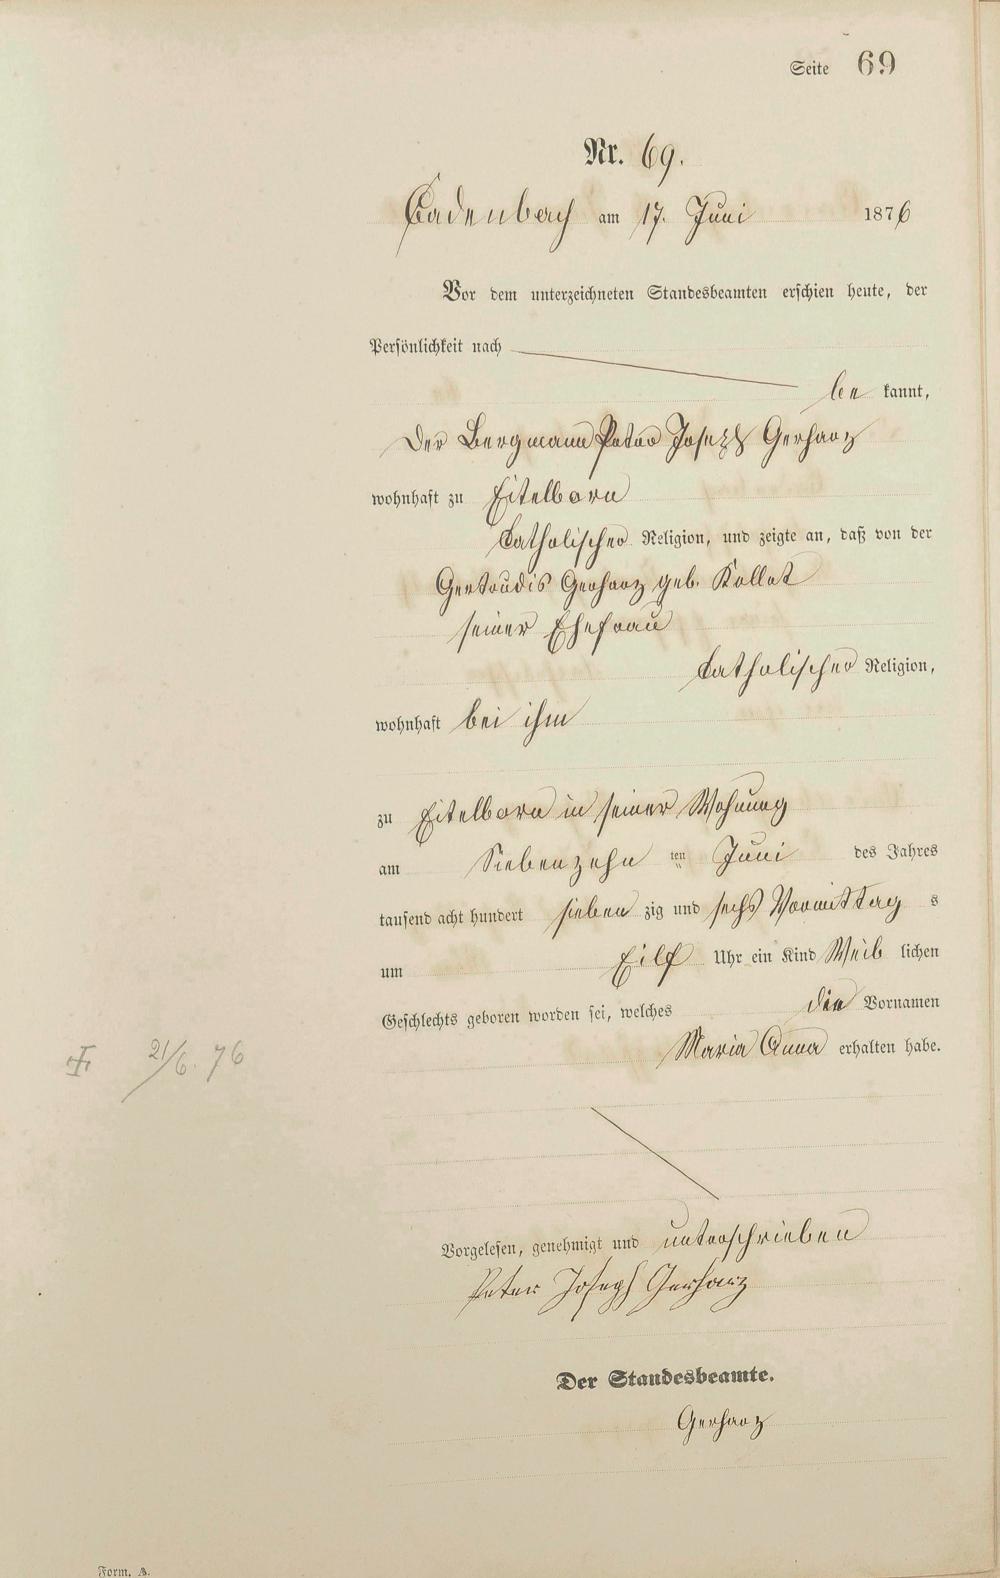 Seite 69
Nr. 69.
Cadenbach am 17. Juni 1876
Vor dem unterzeichneten Standesbeamten erschien heute, der
Persönlichkeit nach
be kannt,
der Bergmann Peter Joseph Gerharz
wohnhaft zu Eitelborn
katholischer Religion, und zeigte an, daß von der
Gertrudis Gerharz geb. Kollat
seiner Ehefrau
katholischer Religion,
wohnhaft bei ihm
zu Eitelborn in seiner Wohnung
am Siebenzehn ten Juni des Jahres
tausend acht hundert sieben zig und sechs Vormittag s
um Eilf Uhr ein Kind Weib lichen
Geschlechts geboren worden sei, welches die Vornamen
Maria Anna erhalten habe.
21/6. 76
Vorgelesen, genehmigt und unterschrieben
Peter Joseph Gerharz
Der Standesbeamte.
Gerharz
Form. A.